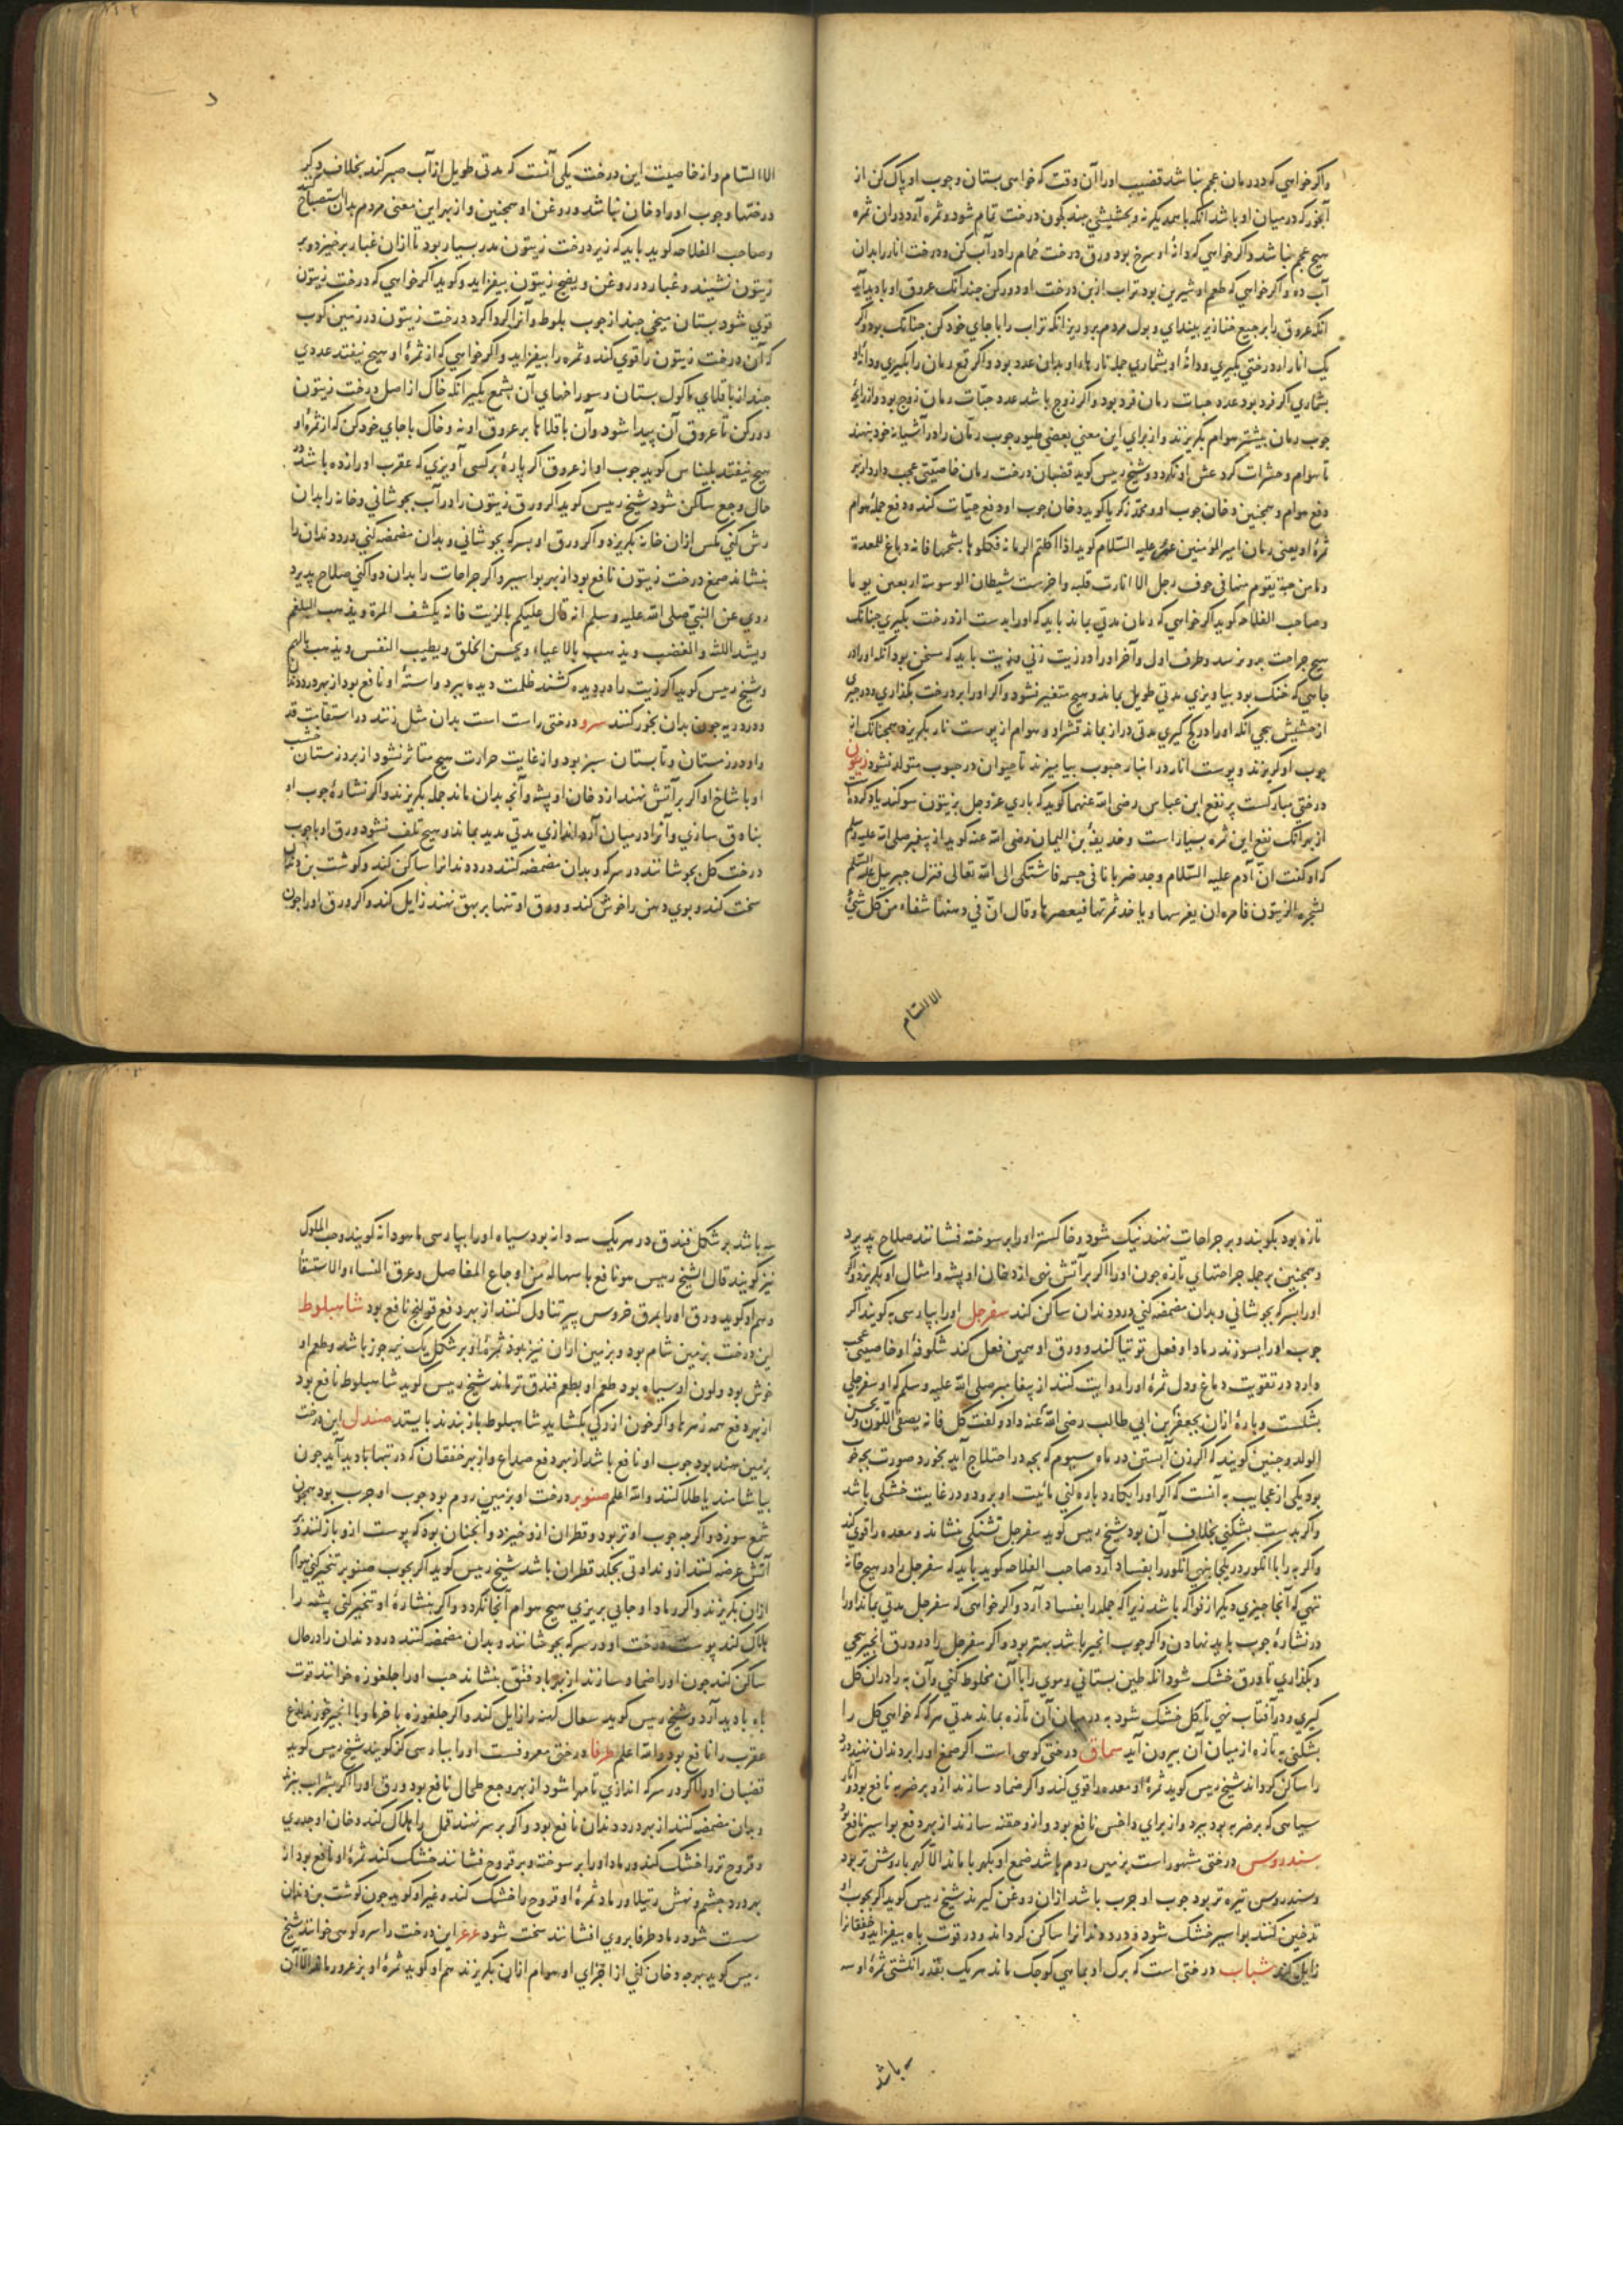 واکر خواهی که در رمان عجم نباشد قضیب اورا آن وقت که خواهی بستان وچوب او پاک کن از
آنچه در میان او باشد آنکه باهمدیکرنه وبحشیشی بند بکون درخت تمام شود وثمره آرد ودران ثمره
هیچ عجم نباشد واکر خواهی که دانهٔ او سرخ بود ورق درخت حمام را در آب کن ودرخت انار را بدان
آب ده واکر خواهی که طعم او شیرین بود تراب از بن درخت او دور کن چندانک عروق او بادید آید
انکه عروق را برجیع خنازیر بیندای وبول مردم برو ریز انکه تراب را با جای خود کن چنانک بود واکر
یک انار از درختی بکیری ودانهٔ او بشماری جمله نارها او بدان عدد بود واکر قمع رمان را بکیری ودانهٔ او
بشماری اکر فرد بود عدد حبات رمان فرد بود واکر زوج باشد عدد حبّات رمان زوج بود واز رایحهٔ
چوب رمان بیشتر هوام بکریزند واز برای این معنی بعضی طیور چوب رمّان را در آشیانه خود نهند
تا هوام وحشرات کرد عش او نکردد وشیخ رییس کوید قضبان درخت رمان خاصیّتی عجب دارد از بهر
دفع هوام وهمچنین دخان چوب او ومحمّد زکریا کوید دخان چوب او دفع حیّات کند ودفع جملهٔ هوام
ثمرهٔ او یعنی رمان امیرالمؤمنین علیه السّلام کوید اذا اکلتم الرمانه فکلوها بشحمها فانه دباغ للمعدة
وما من حبة یقوم منها فی جوف رجل الا انارت قلبه واخرست شیطان الوسوسة اربعین یوما
وصاحب الفلاحه کوید اکر خواهی که رمان مدتی بماند باید که اورا بدست از درخت بکیری چنانک
هیچ جراحت برو نرسد وطرف اول وآخر اورا در زیت زنی وزیت باید که سخن بود انکه اورا در
جایی که خنک بود بیاویزی مدتی طویل بماند وهیچ متغیر نشود واکر اورا بر درخت بکذاری ودر چیزی
از حشیش پیچی انکه اورا در کج کیری مدتی دراز بماند قشر او وهوام از پوست نار بکریزد همچنانک از
چوب او کریزند وپوست انار در انبار حبوب بیامیزند تا حیوان در حبوب متولد نشود زیتون
درختی مبارکست پر نفع ابن عباس رضی الله عنهما کوید که باری عز وجل بزیتون سوکند یاد کرده است
از بهر انک نفع این ثمره بسیار است وحذیفة بن الیمان رضی الله عنه کوید از پیغبر صلی الله علیه وسلم
که او کفت انّ آدم علیه السّلام وجد ضربانا فی جسمه فاشتکی الی الله تعالی فنزل جبریل علیه السّلم
بشجره الزیتون فامره ان یغرسها ویاخذ ثمرتها فیعصرها وقال انّ فی دهنها شفاء من کل شیء
الا السّام
الا السّام واز خاصیت این درخت یکی آنست که مدتی طویل از آب صبر کند بخلاف دیکر
درختها وچوب اورا دخان نباشد وروغن او همچنین واز بهر این معنی مردم بدان استصباح کنند
وصاحب الفلاحه کوید باید که زیر درخت زیتون مدر بسیار بود تا از آن غبار برخیزد وبر
زیتون نشیند وغبار در روغن ونضج زیتون بیفزاید وکوید اکر خواهی که درخت زیتون
قوی شود بستان میخی چند از چوب بلوط وآنرا کرداکرد درخت زیتون در زمین کوب
که آن درخت زیتون را قوی کند وثمره را بیفزاید واکر خواهی که از ثمرهٔ او هیچ نیفتد عددی
چند از باقلای ماکول بستان وسوراخهای آن بشمع بکیر انکه خاک از اصل درخت زیتون
دور کن تا عروق آن پیدا شود وآن باقلاها بر عروق او نه وخاک با جای خود کن که از ثمرهٔ او
هیچ نیفتد بلیناس کوید چوب او از عروق اکر پارهٔ بر کسی آویزی که عقرب اورا زده باشد در
حال وجع ساکن شود شیخ رییس کوید اکر ورق زیتون را در آب بجوشانی وخانه را بدان
رش کنی مکس از ان خانه بکریزد واکر ورق او بسرکه بجوشانی وبدان مضمضه کنی درد دندان را
بنشاند صمغ درخت زیتون نافع بود از بهر بواسیر واکر جراحات را بدان دوا کنی صلاح پذیرد
روی عن النبّی صلی الله علیه وسلم انه قال علیکم بالزیت فانه یکشف المرة ویذهب البلغم
ویشد اللثه والغضب ویذهب بالاعیاء ویحسن الخلق ویطیب النفس ویذهب بالهم
وشیخ رییس کوید اکر زیت را در دیده کشند ظلمت دیده ببرد واستهٔ او نافع بود از بهر درد دندان
ودرد ریه چون بدان بخور کنند سرو درختی راست است بدان مثل زنند در استقامت قد
واو در زمستان وتابستان سبز بود واز غایت حرارت هیچ متاثر نشود از برد زمستان خشب
او با شاخ او اکر بر آتش نهند از دخان او پشه وآنچه بدان ماند جمله بکریزند واکر نشارهٔ چوب او
بنادق سازی وآنرا در میان آرد اندازی مدتی مدید بماند وهیچ تلف نشود ورق او با چوب
درخت کل بجوشانند در سرکه وبدان مضمضه کنند درد دندانرا ساکن کند وکوشت بن دندان
سخت کند وبوی دهن را خوش کند وورق او تنها بر بهق نهند زایل کند واکر ورق اورا چون
تازه بود بکوبند وبر جراحات نهند نیک شود وخاکستر اورا بر سوخته فشانند صلاح پذیرد
وهمچنین بر جمله جراحتهای تازه چون اورا اکر بر آتش نهی از دخان او پشه وامثال او بکریزد واکر
اورا بسرکه بجوشانی وبدان مضمضه کنی درد دندان ساکن کند سفرجل اورا بپارسی به کویند اکر
چوب اورا بسوزند رماد او فعل توتیا کند وورق او همین فعل کند شکوفهٔ او خاصیتی عجب
دارد در تقویت دماغ ودل ثمرهٔ اورا روایت کنند از پیغامبر صلی الله علیه وسلم که او سفرجلی
بشکست وپارهٔ از ان بجعفر بن ابی طالب رضی الله عنه داد وکفت کل فانه یصفی اللّون ویحسن
الولد وچنین کویند که اکر زن آبستن در ماه سیوم که بچه در اختلاج آید بخورد صورت بچه خوب
بود یکی از عجایب به آنست که اکر اورا بکارد پاره کنی مائیت او برود ودر غایت خشکی باشد
واکر بدست بشکنی بخلاف آن بود شیخ رییس کوید سفرجل تشنکی بنشاند ومعده را قوی کند
واکر به را با انکور در یکجا بنهی انکور را بفساد آرد صاحب الفلاحه کوید باید که سفرجل را در هیچ خانهٔ
ننهی که آنجا چیزی دیکر از فواکه باشد زیرا که جمله را بفساد آرد واکر خواهی که سفرجل مدتی بماند اورا
در نشارهٔ چوب باید نهادن واکر چوب انجیر باشد بهتر بود واکر سفرجل را در ورق انجیر پیچی
وبکذاری تا ورق خشک شود انکه طین بستانی وموی را با آن مخلوط کنی وآن به را در ان کل
کیری ودر آفتاب نهی تا کل خشک شود به در میان آن تازه بماند مدتی هرکه که خواهی کل را
بشکنی به تازه از میان آن بیرون آید سماق درختی کوهی است اکر صمغ اورا بر دندان نهند درد
را ساکن کرداند شیخ رییس کوید ثمرهٔ او معده را قوی کند واکر ضماد سازند ازو بر ضربه نافع بود واثر
سیاهی که بر ضربه بود ببرد واز برای داخس نافع بود وازو حقنه سازند از بهر دفع بواسیر نافع بود
سندروس درختی مشهور است بزمین روم باشد صمغ او بکهربا ماند الّا کهربا روشن تر بود
وسندروس تیره تر بود چوب او چرب باشد ازان روغن کیرند شیخ رییس کوید اکر بچوب او
تدخین کنند بواسیر خشک شود ودرد دندانرا ساکن کرداند ودر قوت باه بیفزاید وخفقانرا
زایل کند شباب درختی است که برک او بماهی کوچک ماند هریک بقدر انکشتی ثمرهٔ او سه
سه باشد
سه باشد بر شکل فندق در هریک سه دانه بود سیاه اورا بپارسی ماهودانه کویند وحبّ الملوک
نیز کویند قال الشیخ رییس هو نافع باسهاله من اوجاع المفاصل وعرق النساء والاستسقا
وهم او کوید ورق اورا بمرق خروس پیر تناول کنند از بهر دفع قولنج نافع بود شاهبلوط
این درخت بزمین شام بود وبزمین اران نیز بود ثمرهٔ او بر شکل یک نیمه جوز باشد وطعم او
خوش بود ولون او سیاه بود طعم او بطعم فندق تر ماند شیخ رییس کوید شاهبلوط نافع بود
از بهر دفع همه زهرها واکر خون از رکی بکشاید شاهبلوط باز بندند بایستد صندل این درخت
بزمین هند بود چوب او نافع باشد از بهر دفع صداع واز بهر خفقان که در تبها بادید آید چون
بیاشامند یا طلا کنند والله اعلم صنوبر درخت او بزمین روم بود چوب او چرب بود همچون
شمع سوزد واکرچه چوب او تر بود وقطران ازو خیزد وآنچنان بود که پوست ازو باز کنند وبر
آتش عرضه کنند ازو نداوتی بچکد قطران باشد شیخ رییس کوید اکر بچوب صنوبر تبخیر کنی هوام
ازان بکریزند واکر رماد او جایی بریزی هیچ هوام آنجا نکردد واکر بنشارهٔ او تبخیر کنی پشه را
هلاک کند پوست درخت او در سرکه بجوشانند وبدان مضمضه کنند درد دندان را در حال
ساکن کند چون اورا ضماد سازند از بهر باد فتق بنشاند حب اورا جلغوزه خوانند قوت
باه بادید آرد وشیخ رییس کوید سعال کهنه را زایل کند واکر جلغوزه با خرما وبا انجیر خورند لدغ
عقرب را نافع بود والله اعلم طرفا درختی معروفست اورا بپارسی کز کویند شیخ رییس کوید
قضبان اورا اکر در سرکه اندازی تا مهرا شود از بهر وجع طحال نافع بود ورق اورا اکر بشراب بپزند
وبدان مضمضه کنند از بهر درد دندان نافع بود واکر بر سر نهند قمل را هلاک کند دخان او جدری
وقروح تر را خشک کند ورماد اورا بر سوخته وبر قروح فشانند خشک کند ثمرهٔ او نافع بود از
بهر درد چشم ونهش رتیلا ورماد ثمرهٔ او قروح را خشک کند وغیر او کوید چون کوشت بن دندان
سست شود رماد طرفا بروی افشانند سخت شود عرعر این درخت را سرو کوهی خوانند شیخ
رییس کوید بهرچه دخان کنی از اجزای او هوام ازان بکریزند هم او کوید ثمرهٔ او بزعرور ماند الّا آن